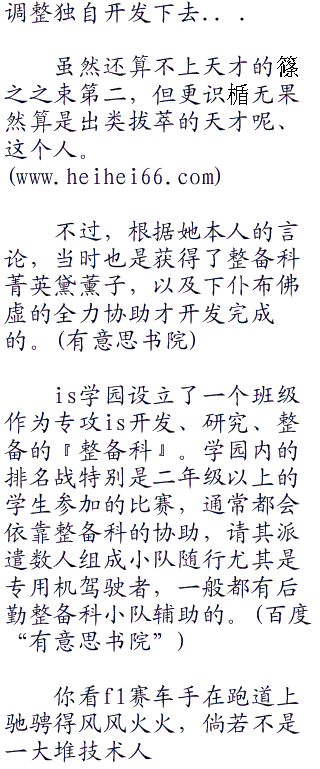 调整独自开发下去...
虽然还算不上天才的篠
之之束第二，但更识楯无果
然算是出类拔萃的天才呢、
这个人。
(www.heihei66.com)
不过，根据她本人的言
论，当时也是获得了整备科
菁英黛薰子，以及下仆布佛
虚的全力协助才开发完成
的。(有意思书院)
is学园设立了一个班级
作为专攻is开发、研究、整
备的『整备科』。学园内的
排名战特别是二年级以上的
学生参加的比赛，通常都会
依靠整备科的协助，请其派
遣数人组成小队随行尤其是
专用机驾驶者，一般都有后
勤整备科小队辅助的。(百度
“有意思书院”)
你看f1赛车手在跑道上
驰骋得风风火火，倘若不是
一大堆技术人